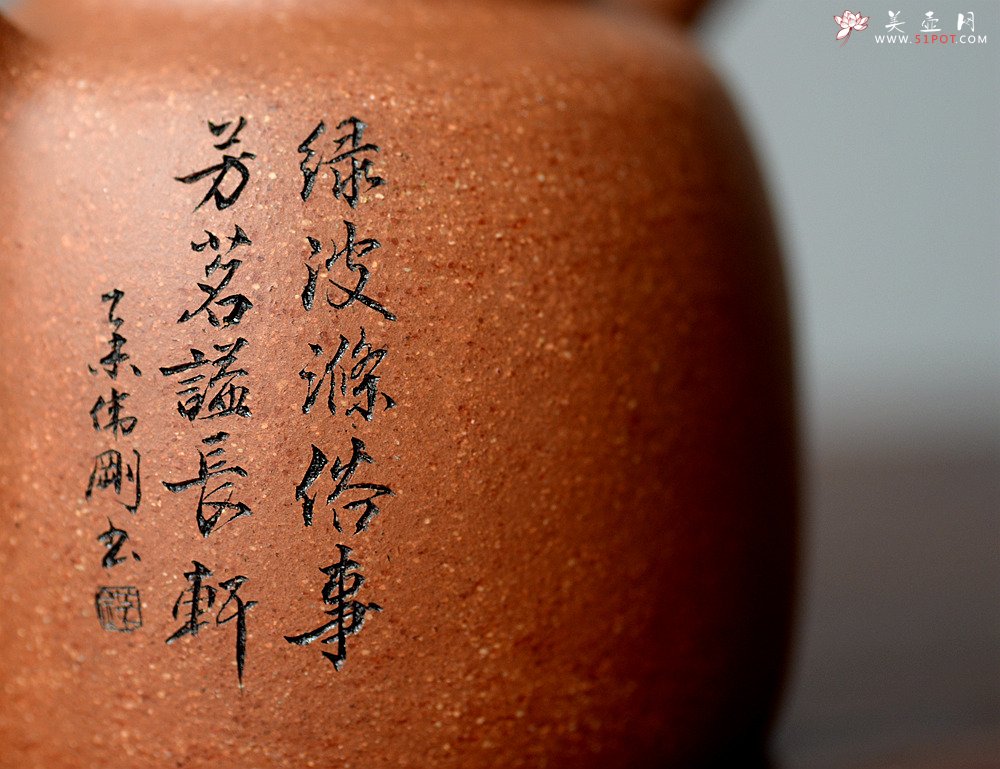 美壶网
WWW.51POT.COM
绿波滌俗事
芳茗謐長軒
乙未伟剛书